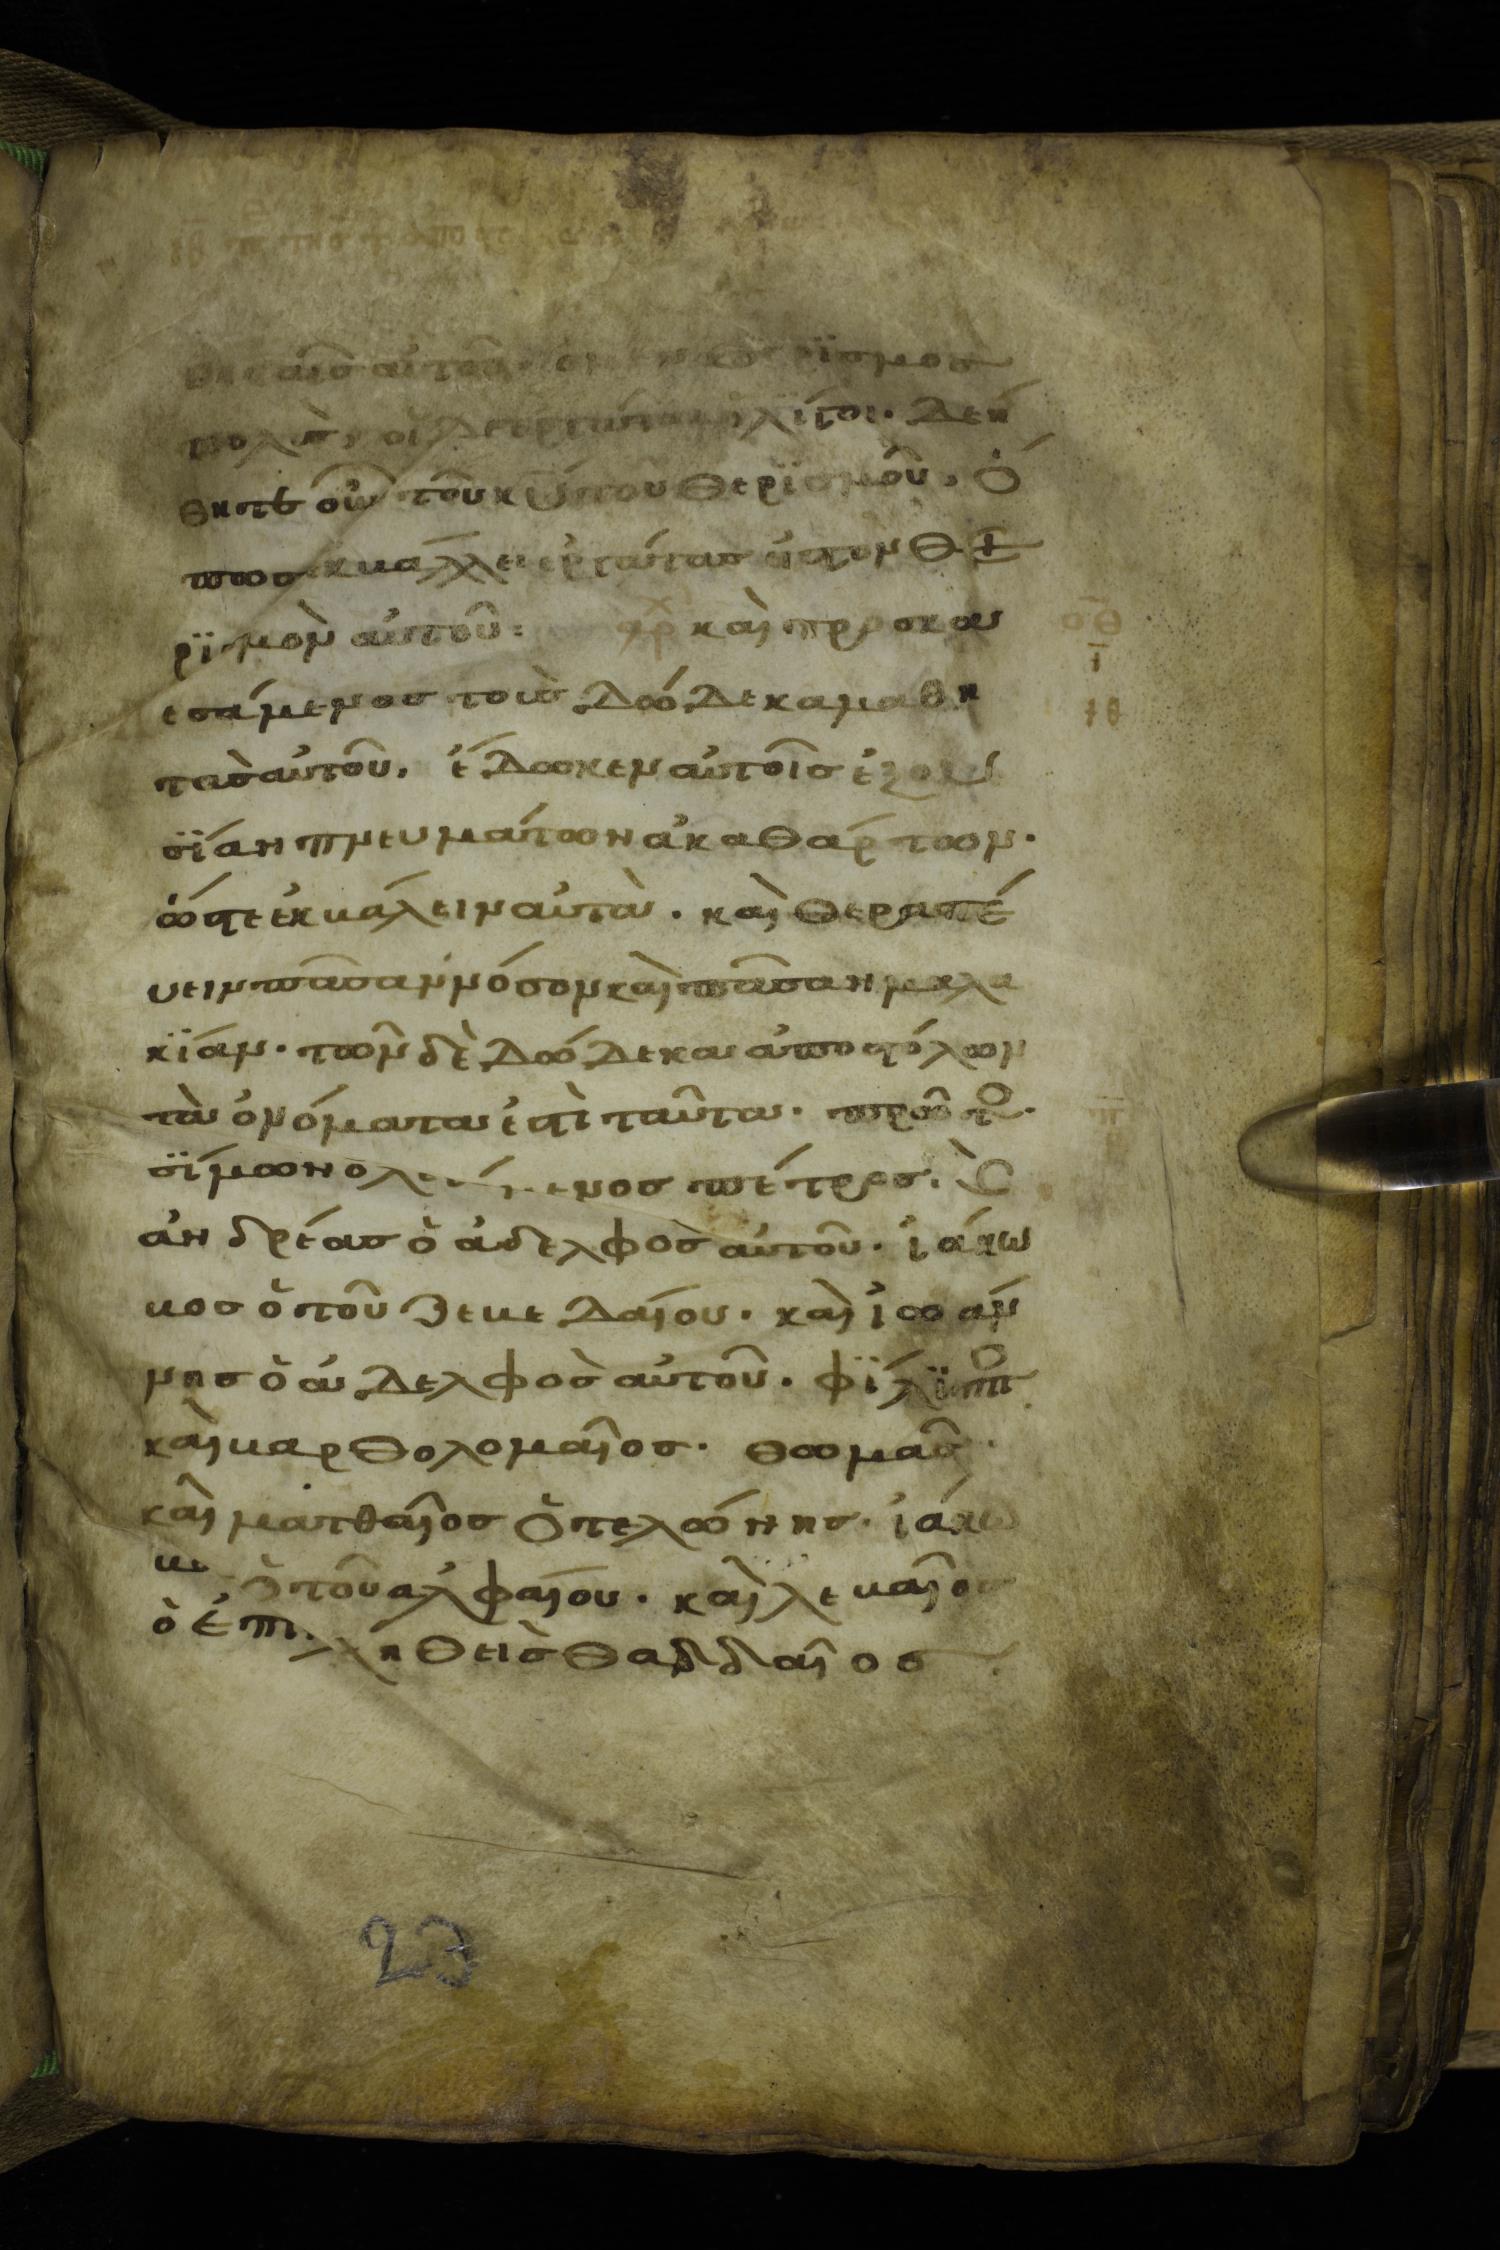 θηταῖς αὐτοῦ· ὁ μὲν θερϊσμος
πολὺς οἱ δὲ ἐργάται ὀλίγοι· Δεή
θητε οὖν τοῦ κῡ του θερϊσμοῦ, ὅ
πως ἐκβάλλει ἐργάτας εἰς τὸν θε
ρϊσμὸν αὐτοῦ: αρχ καὶ προσκαλ
εσάμενος τοὺς δώδεκα μαθη
τὰς αὐτοῦ, ἔδωκεν αὐτοῖς ἐξου
σϊάν πνευμάτων ἀκαθάρτων·
ὥστε ἐκβάλειν αὐτὰ· καὶ θεραπέ
υειν πᾶσαν νόσον καὶ πᾶσαν μαλα
κϊάν· τῶν δὲ δώδεκα ἀποστόλων
τὰ ὀνόματα ἐστὶ ταῦτα· πρῶτο
σϊμων ὁ λεγόμενος πέτρος, καὶ
ἀνδρέας ὁ ἀδελφὸς αὐτοῦ· ἰάκω
βος ὁ τοῦ ζεβεδαίου· καὶ ἰωάν
νης ὁ ἀδελφὸς αὐτοῦ· φϊλϊππο
καὶ βαρθολομαῖος· θωμᾶς·
καὶ ματθαῖος ὁ τελώνης· ἰάκω
βος ὁ τοῦ ἀλφαίου· καὶ λεβαῖος
ὁ ἐπικληθεὶς θαδδαῖος
ο̅θ̅
ι̅
ιθ
π̅
23